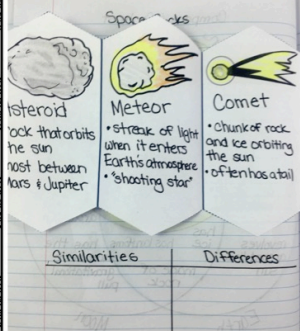 Space Rocks
Asteroid
rock that orbits
the sun
most between
Mars & Jupiter
Meteor
• streak of light
when it enters
Earth's atmosphere
• "shooting star"
Comet
• chunk of rock
and ice orbiting
the sun
• often has a tail
Similarities
Differences